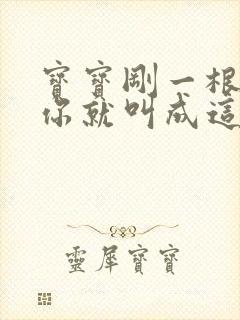 寶寶剛一根
你就叫成這
靈犀寶寶